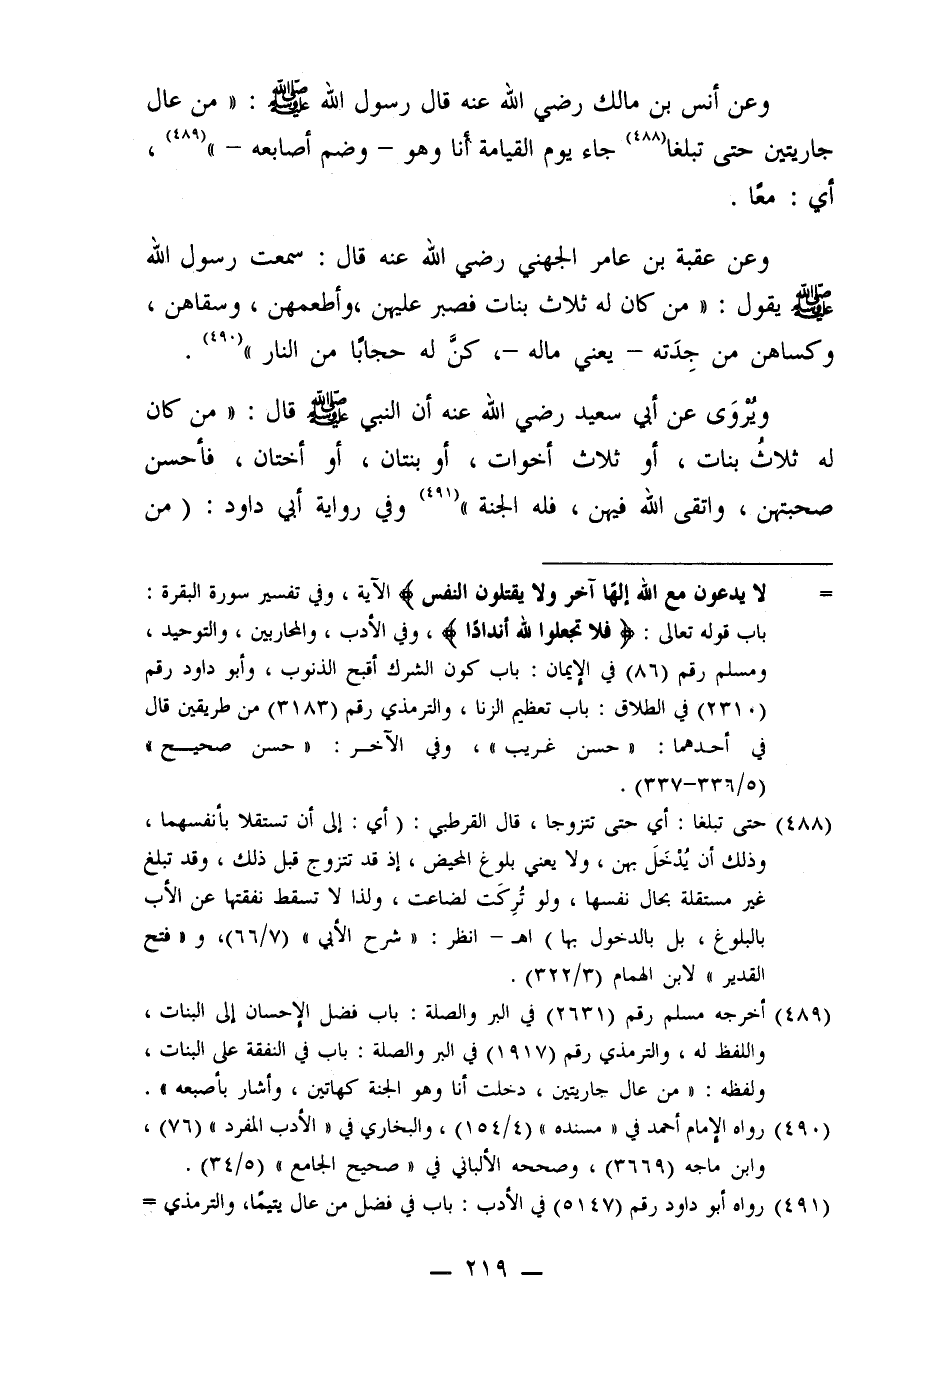 وعن أنس بن مالك رضي الله عنه قال رسول الله ﷺ : « من عال
جاريتين حتى تبلغا(٤٨٨) جاء يوم القيامة أنا وهو – وضم أصابعه – »(٤٨٩) ،
أي : معًا .
وعن عقبة بن عامر الجهني رضي الله عنه قال : سمعت رسول الله
ﷺ يقول : « من كان له ثلاث بنات فصبر عليهن ،وأطعمهن ، وسقاهن ،
وكساهن من جِدَته – يعني ماله –، كنَّ له حجابًا من النار »(٤٩٠) .
ويُرْوَى عن أبي سعيد رضي الله عنه أن النبي ﷺ قال : « من كان
له ثلاثُ بنات ، أو ثلاث أخوات ، أو بنتان ، أو أختان ، فأحسن
صحبتهن ، واتقى الله فيهن ، فله الجنة »(٤٩١) وفي رواية أبي داود : ( من
= لا يدعون مع الله إلهًا آخر ولا يقتلون النفس ﴾ الآية ، وفي تفسير سورة البقرة :
باب قوله تعالى : ﴿ فلا تجعلوا لله أندادًا ﴾ ، وفي الأدب ، والمحاربين ، والتوحيد ،
ومسلم رقم (٨٦) في الإيمان : باب كون الشرك أقبح الذنوب ، وأبو داود رقم
(٢٣١٠) في الطلاق : باب تعظيم الزنا ، والترمذي رقم (٣١٨٣) من طريقين قال
في أحدهما : « حسن غريب » ، وفي الآخر : « حسن صحيح »
(٣٣٦/٥–٣٣٧) .
(٤٨٨) حتى تبلغا : أي حتى تتزوجا ، قال القرطبي : ( أي : إلى أن تستقلا بأنفسهما ،
وذلك أن يُدْخَلَ بهن ، ولا يعني بلوغ المحيض ، إذ قد تتزوج قبل ذلك ، وقد تبلغ
غير مستقلة بحال نفسها ، ولو تُرِكَت لضاعت ، ولذا لا تسقط نفقتها عن الأب
بالبلوغ ، بل بالدخول بها ) اهـ – انظر : « شرح الأبي » (٦٦/٧)، و « فتح
القدير » لابن الهمام (٣٢٢/٣) .
(٤٨٩) أخرجه مسلم رقم (٢٦٣١) في البر والصلة : باب فضل الإحسان إلى البنات ،
واللفظ له ، والترمذي رقم (١٩١٧) في البر والصلة : باب في النفقة على البنات ،
ولفظه : « من عال جاريتين ، دخلت أنا وهو الجنة كهاتين ، وأشار بأصبعه » .
(٤٩٠) رواه الإمام أحمد في « مسنده » (١٥٤/٤) ، والبخاري في « الأدب المفرد » (٧٦) ،
وابن ماجه (٣٦٦٩) ، وصححه الألباني في « صحيح الجامع » (٣٤/٥) .
(٤٩١) رواه أبو داود رقم (٥١٤٧) في الأدب : باب في فضل من عال يتيمًا، والترمذي =
— ٢١٩ —